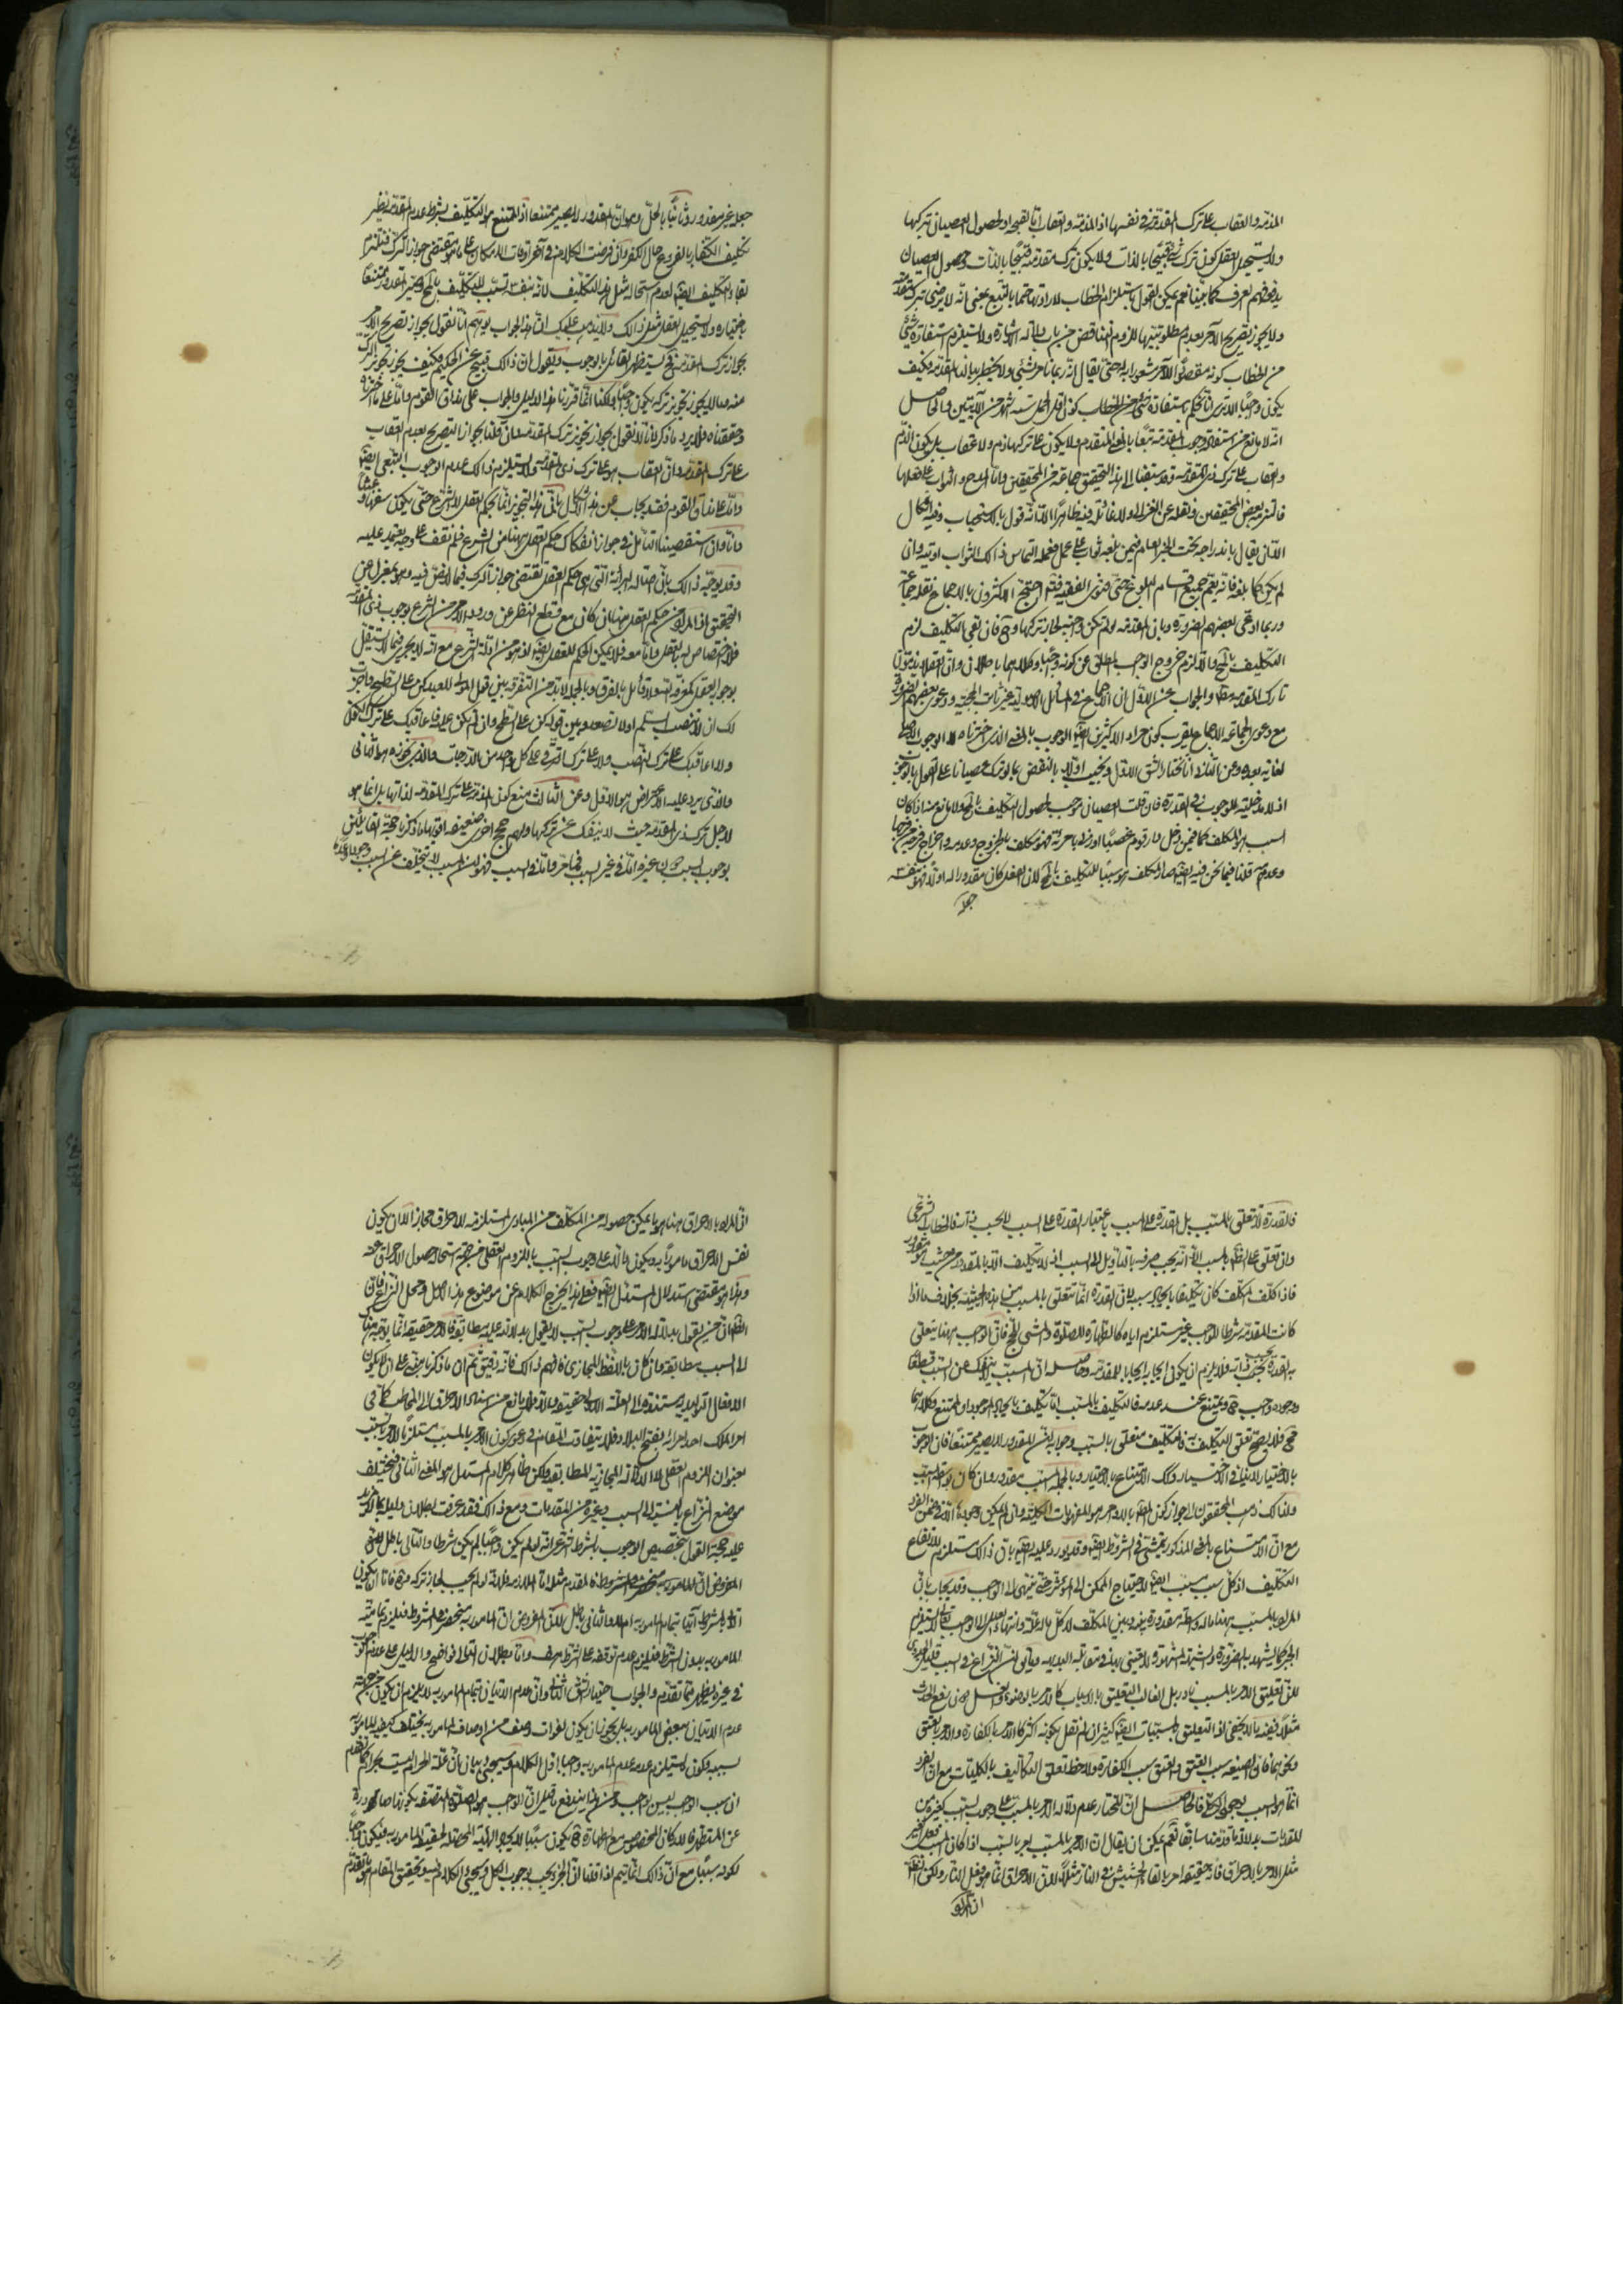 المذمة والعقاب على ترك المقدمة في نفسها اذ المذمة والعقاب اما لقبح او لحصول العصيان بتركها
ولا يستحيل العقل كون ترك شئ قبيحا بالذات ولا يكون ترك مقدمته قبيحا بالذات وحصول العصيان
يدفعه فهم العرف كما بينا نعم يمكن القول باستلزام الخطاب لارادتها حتما بالتبع بمعنى انه لا يرضى بترك مقدمته
ولا يجوز تصريح الآمر بعدم مطلوبيتها للزوم التناقض من باب دلالة الاشارة ولا يستلزم استفادة شئ
من الخطاب كونه مقصودا للآمر مشعورا به حتى يقال انه ربما نأمر بشئ ولا يخطر ببالنا المقدمة فكيف
يكون واجبا الا ترى انا نحكم باستفادة شئ من الخطاب كون اقل الحمل ستة اشهر من الآيتين والحاصل
انه لا مانع من استفادة وجوب المقدمة تبعا بالمعنى المتقدم ولا يكون على تركها ذم ولا عقاب بل يكون الذم
والعقاب على ترك ذي المقدمة وقد سبقنا الى هذا التحقيق جماعة من المحققين واما المدح والثواب على فعلها
فالتزمه بعض المحققين ونقله عن الغزالي ولا غائلة فيه ظاهرا الا انه قول بالاستحباب وفيه اشكال
الا ان يقال باندراجه تحت الخبر العام فيمن بلغه ثواب على عمل فعمله التماس ذلك الثواب اوتيه وان
لم يكن كما بلغه فانه يعم جميع اقسام البلوغ حتى فتوى الفقيه فتم احتج الاكثرون بالاجماع نقله جماعة
وربما ادعى بعضهم الضرورة وبان المقدمة لو لم تكن واجبة لجاز تركها وح فان بقي التكليف لزم
التكليف بالمح والا لزم خروج الواجب المطلق عن كونه واجبا وكلاهما باطلان وان العقلاء يذمون
تارك المقدمة مطلقا والجواب عن الاول ان الاجماع في المسائل الاصولية غير ثابت الحجية ودعوى بعضهم الضرورة
مع دعوى الجماعة الاجماع يقرب كون مراد الاكثرين ايضا الوجوب بالمعنى الذي اخترناه الوجوب الاصلي
لغاية بعده وعن الثاني انا نختار الشق الاول ونجيب اولا بالنقض بما لو ترك عصيانا على القول بالوجوب
اذ لا مدخلية للوجوب في القدرة فان قلت العصيان موجب لحصول التكليف بالمح ولا مانع منه اذا كان
السبب هو المكلف كما فيمن دخل دار قوم غصبا او زنى بامرءة فهو مكلف بالخروج وعدمه واخراج فرجه من فرجها
وعدمه قلنا فيما نحن فيه ايضا صار المكلف هو سببا للتكليف بالمح لان الفعل كان مقدورا له اولا فهو بنفسه
جعله
جعله غير مقدور وثانيا بالحل وهو ان المقدور لا يصير ممتنعا اذ الممتنع هو التكليف بشرط عدم المقدمة نظير
تكليف الكفار بالفروع حال الكفر وان فرضت الكلام في آخر اوقات الامكان على ما هو مقتضى جواز الترك فنلتزم
بقاء التكليف ايضا لعدم استحالة مثل هذا التكليف لانه بنفسه تسبب للتكليف بالمح وصير المقدور ممتنعا
باختياره ولا يستحيل العقل مثل ذلك ولا يذهب عليك ان هذا الجواب يوهم انا نقول بجواز تصريح الآمر
بجواز ترك المقدمة فح يستظهر القائل بالوجوب ويقول ان ذلك قبيح عن الحكيم فكيف يجوز تجويز الترك
منه وما لا يجوز تجويز تركه يكون واجبا ولكنا انما قررنا هذا الدليل والجواب على مذاق القوم واما على ما اخترناه
وحققناه فلا يرد ما ذكر لانا لا نقول بجواز تجويز ترك المقدمة وان قلنا بجواز التصريح بعدم العقاب
على ترك المقدمة وان العقاب هو على ترك ذي المقدمة ولا يستلزم ذلك عدم الوجوب التبعي ايضا
واما على مذاق القوم فقد يجاب عن هذا الاشكال بان هذا التجويز انما هو بحكم العقل لا الشرع حتى يكون سفها وعبثا
واما وان استقصينا التأمل في جواز انفكاك حكم العقل هنا من الشرع فلم نقف على وجه يعتمد عليه
وقد يوجه ذلك بان اصالة البراءة التي هي حكم العقل تقتضي جواز الترك فيما لا نص فيه وهو بمعزل عن
التحقيق اذ المراد من حكم العقل هنا ان كان مع قطع النظر عن ورود الامر من الشرع بوجوب ذي المقدمة
فلا اختصاص له بالعقل واما معه فلا يمكن الحكم للعقل ايضا اذ هو من ادلة الشرع مع انه لا يجري فيما لا يستقل
بوجوبه العقل كمعرفة الله ولا قائل بالفرق وبالجملة لا بد من التفرقة بين قول المولى للعبد كن على السطح واجزت
لك ان لا تنصب السلم اولا تصعد وبين قوله كن على السطح وان لم تكن عليه فاعاقبك على ترك الكون
ولا اعاقبك على ترك النصب ولا على ترك الترقي على كل واحد من الدرجات والذي نجوزه هو الثاني
والذي يرد عليه الاعتراض هو الاول وعن الثالث منع كون الذم على ترك المقدمة لذاتها بل انما هو
لاجل ترك ذي المقدمة حيث لا ينفك عن تركها ولهم حجج اخرى ضعيفة اقويها ما ذكرنا حجة القائلين
بوجوب السبب دون غيره اما في غير السبب فيما مر واما في السبب فهو ان المسبب لا يتخلف عن السبب وجودا وعدما
فالقدرة لا تتعلق بالمسبب بل القدرة على المسبب باعتبار القدرة على السبب لا بحسب ذاته فالخطاب الشرعي
وان تعلق على الظاهر بالمسبب الا انه يجب صرفه بالتأويل الى السبب اذ لا تكليف الا بالمقدور من حيث هو مقدور
فاذا كلف المكلف كان تكليفا بايجاد سببه لان القدرة انما تتعلق بالمسبب من هذه الحيثية بخلاف ما اذا
كانت المقدمة شرطا للواجب غير مستلزم اياه كالطهارة للصلوة والمشي للحج فان الواجب ههنا يتعلق
به القدرة بحسب ذاته فلا يلزم ان يكون ايجابه ايجابا للمقدمة وحاصله ان المسبب لا ينفك عن السبب قطعا
ووجوده واجب ح ويمتنع عند عدمه فالتكليف بالمسبب اما تكليف بايجاد الموجود او الممتنع وكلاهما
مح فلا يصح تعلق التكليف به فالتكليف متعلق بالسبب وجوابه ان المقدور لا يصير ممتنعا فان الوجوب
بالاختيار لا ينافي الاختيار وكذا الامتناع بالاختيار وبالجملة المسبب مقدور وان كان بواسطة السبب
ولذلك ذهب المحققون الى جواز كون المطلوب بالاوامر هو المفهومات الكلية وان لم يمكن وجودها الا في ضمن الفرد
مع ان الامتناع بالمعنى المذكور يتمشى في الشروط ايضا وقد يورد عليه ايضا بان ذلك يستلزم ارتفاع
التكليف اذ كل سبب مسبب ايضا لاحتياج الممكن الى المؤثر حتى ينتهي الى الواجب وقد يجاب بان
المراد بالمسبب هنا ما له واسطة مقدورة بينه وبين المكلف لا كل ما له علة وانتهاء العلل الى الواجب تعالى لا يستلزم
الجبر كما يشهد به الضرورة والشبهة المشهورة لا يعتنى بها في مقابلة البديهة ويأتي ان النزاع في السبب قليل الجدوى
لان تعليق الامر بالمسبب نادر بل الغالب التعليق بالاسباب كالامر بالوضوء والغسل دون رفع الحدث
مثلا وفيه ما لا يخفى اذ التعليق بالمسببات ايضا كثير ان لم نقل بكونه اكثر كالامر بالكفارة والامر بالعتق
ونحوهما فان الصيغة سبب العتق والعتق سبب الكفارة ولاحظ تعلق التكاليف بالكليات مع ان الفرد
انما هو السبب لوجود الكلي فالحاصل ان المختار عدم دلالة الامر بالمسبب على وجوب السبب كغيره من
المقدمات بدلالة ما قدمنا سابقا نعم يمكن ان يقال ان الامر بالمسبب امر بالسبب اذا كان المسبب فعل الغير
مثل الامر بالاحراق فانه حقيقة امر بالقاء الحشيش في النار مثلا لان الاحراق انما هو فعل النار ولكن الظاهر
ان المراد
ان المراد بالاحراق هنا هو ما يمكن حصوله من المكلف من المبادي المستلزمة للاحراق مجازا الا ان يكون
نفس الاحراق مأمورا به ويكون دلالته على وجوب السبب باللزوم العقلي من جهة استحالة حصول الاحراق عنه
وهذا هو مقتضى استدلال المستدل ايضا فعلى هذا يخرج الكلام عن موضوع هذا الاصل ومحل النزاع فان
الظاهر ان من يقول بدلالة الامر على وجوب السبب لا يقول بدلالته عليه مطابقة فالامر حقيقة انما يتوجه هنا
الى السبب مطابقة وان كان باللفظ المجازي فافهم ذلك فانه دقيق ثم ان ما ذكرنا مبني على ان لا يكون
الافعال التوليدية مستندة الى العلة الاولى حقيقة والا فلا مانع من اسناد الاحراق الى المخاطب كما في
امر الملك احد امرائه بفتح البلاد فلا يتفاوت المقام في دعوى كون الامر بالمسبب مستلزما للامر بالسبب
بعنوان اللزوم العقلي لا الدلالة المجازية المطابقة ولكن ظاهر كلام المستدل هو المعنى الثاني فيختلف
موضع النزاع بالنسبة الى السبب وغيره من المقدمات ومع ذلك فقد عرفت بطلان دليله بما لا مزيد
عليه حجة القول بتخصيص الوجوب بالشرط الشرعي انه لو لم يكن واجبا لم يكن شرطا والتالي باطل لانه
المفروض ان المأمور به منحصر في المشروط فالمقدم مثله اما الملازمة فلانه لو لم يجب لجاز تركه وح فاما ان يكون
الآتي بالمشروط آتيا بتمام المأمور به ام لا والثاني باطل لان المفروض ان المأمور به منحصر في المشروط فيلزم تمامية
المأمور به بدون الشرط فيلزم عدم توقفه على الشرط هف واما بطلان التالي فواضح والدليل على عدم الوجوب
في غيره يظهر مما تقدم والجواب اختيار الشق الثاني وان عدم الاتيان بتمام المأمور به لا يلزم ان يكون من جهة
عدم الاتيان ببعض المأمور به بل يجوز ان يكون لفوات وصف من اوصاف المأمور به يختلف كيفية المأمور به
بسببه وكون ما يستلزم عدمه عدم المأمور به واجبا اول الكلام وسيجئ بيان ان علة الحرام ليست بحرام كما تقدم
ان سبب الواجب ليس بواجب ومن هنا يندفع ما قيل ان الواجب هو الصلوة المتصفة بكونها صادرة
عن المتطهر فالاركان المخصوصة مع الطهارة ح يكون سببا لايجاد الهيئة المحصلة لحقيقة المأمور به فيكون واجبا
لكونه سببا مع ان ذلك انما يتم اذا قلنا ان الجزء يجب بوجوب الكل وسيجئ الكلام فيه وتحقيق المقام هو ما تقدم